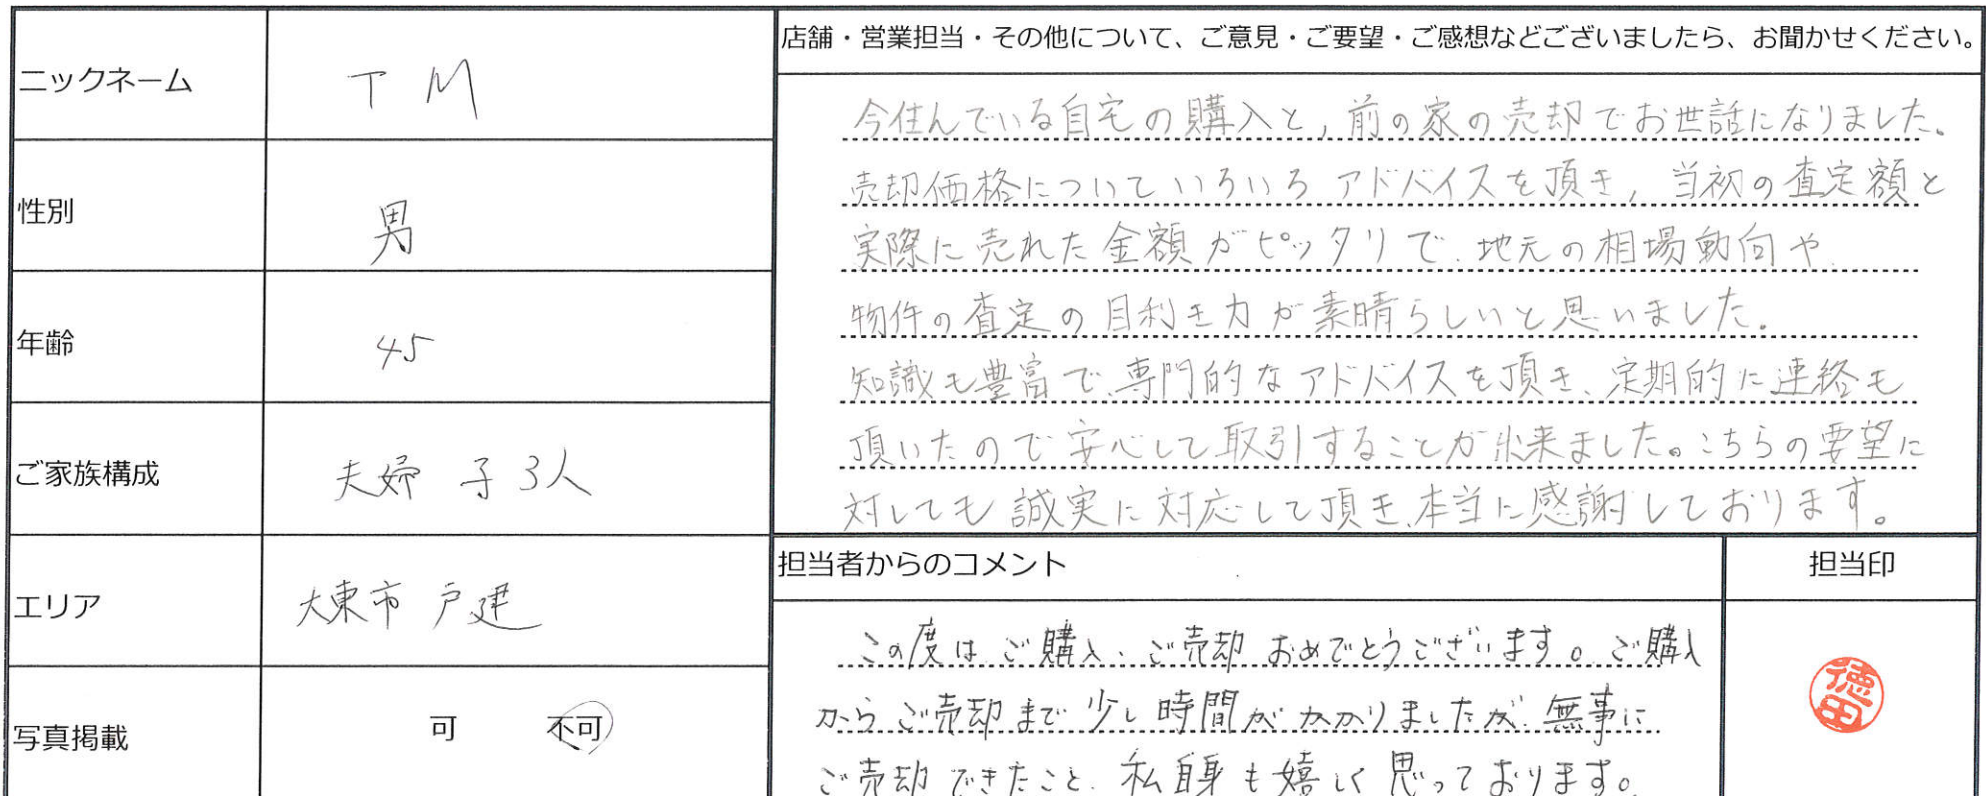 ニックネーム
TM
性別
男
年齢
45
ご家族構成
夫婦 子3人
エリア
大東市 戸建
写真掲載
可 不可
店舗・営業担当・その他について、ご意見・ご要望・ご感想などございましたら、お聞かせください。
今住んでいる自宅の購入と,前の家の売却でお世話になりました。
売却価格についていろいろアドバイスを頂き,当初の査定額と
実際に売れた金額がピッタリで、地元の相場動向や
物件の査定の目利き力が素晴らしいと思いました。
知識も豊富で、専門的なアドバイスを頂き、定期的に連絡も
頂いたので安心して取引することが出来ました。こちらの要望に
対しても誠実に対応して頂き、本当に感謝しております。
担当者からのコメント
担当印
この度は、ご購入、ご売却おめでとうございます。ご購入
からご売却まで少し時間がかかりましたが、無事に
ご売却できたこと、私自身も嬉しく思っております。
徳田